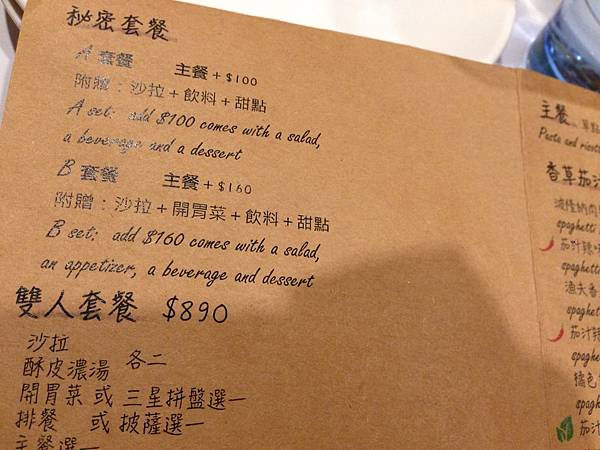 秘密套餐
A 套餐 主餐+$100
附贈：沙拉+飲料+甜點
A set: add $100 comes with a salad,
a beverage and a dessert
B 套餐 主餐+$160
附贈：沙拉+開胃菜+飲料+甜點
B set: add $160 comes with a salad,
an appetizer, a beverage and dessert
雙人套餐 $890
沙拉
酥皮濃湯 各二
開胃菜 或 三星拼盤選一
排餐 或 披薩選一
主餐選一
主餐 單點
Pasta and risott
香草茄汁
波隆納肉
spaghetti
茄汁辣
spaghetti
漁夫香
spaghett
茄汁辣
spaghe
橘色
spag
茄汁